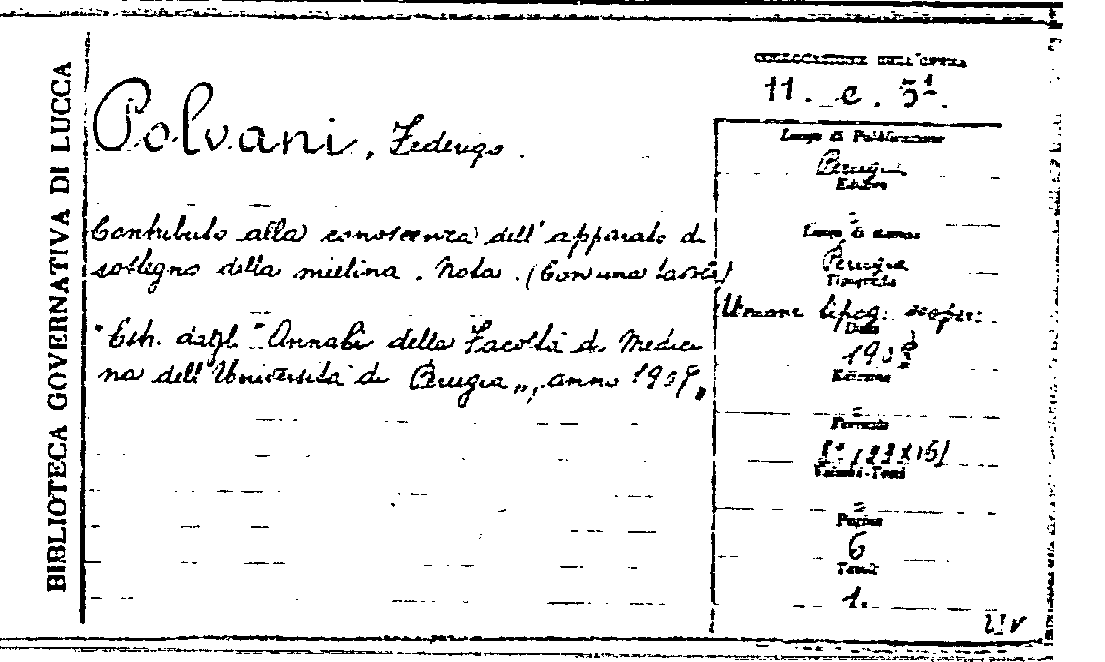 BIBLIOTECA GOVERNATIVA DI LUCCA
COLLOCAZIONE DELL'OPERA
11. c. 51.
Polvani, Federigo.
Contributo alla conoscenza dell'apparato di
sostegno della mielina. Nota. (Con una tavola)
"Estr. dagli "Annali della Facoltà di Medici
na dell'Università di Perugia", anno 190
Luogo di Pubblicazione
Perugia
Editore
=
Luogo di stampa
Perugia
Tipografia
Unione tipog. cooper:
Data
190
Edizione
=
Formato
8° (22x15)
Volumi-Tomi
=
Pagine
6
Tavole
1.